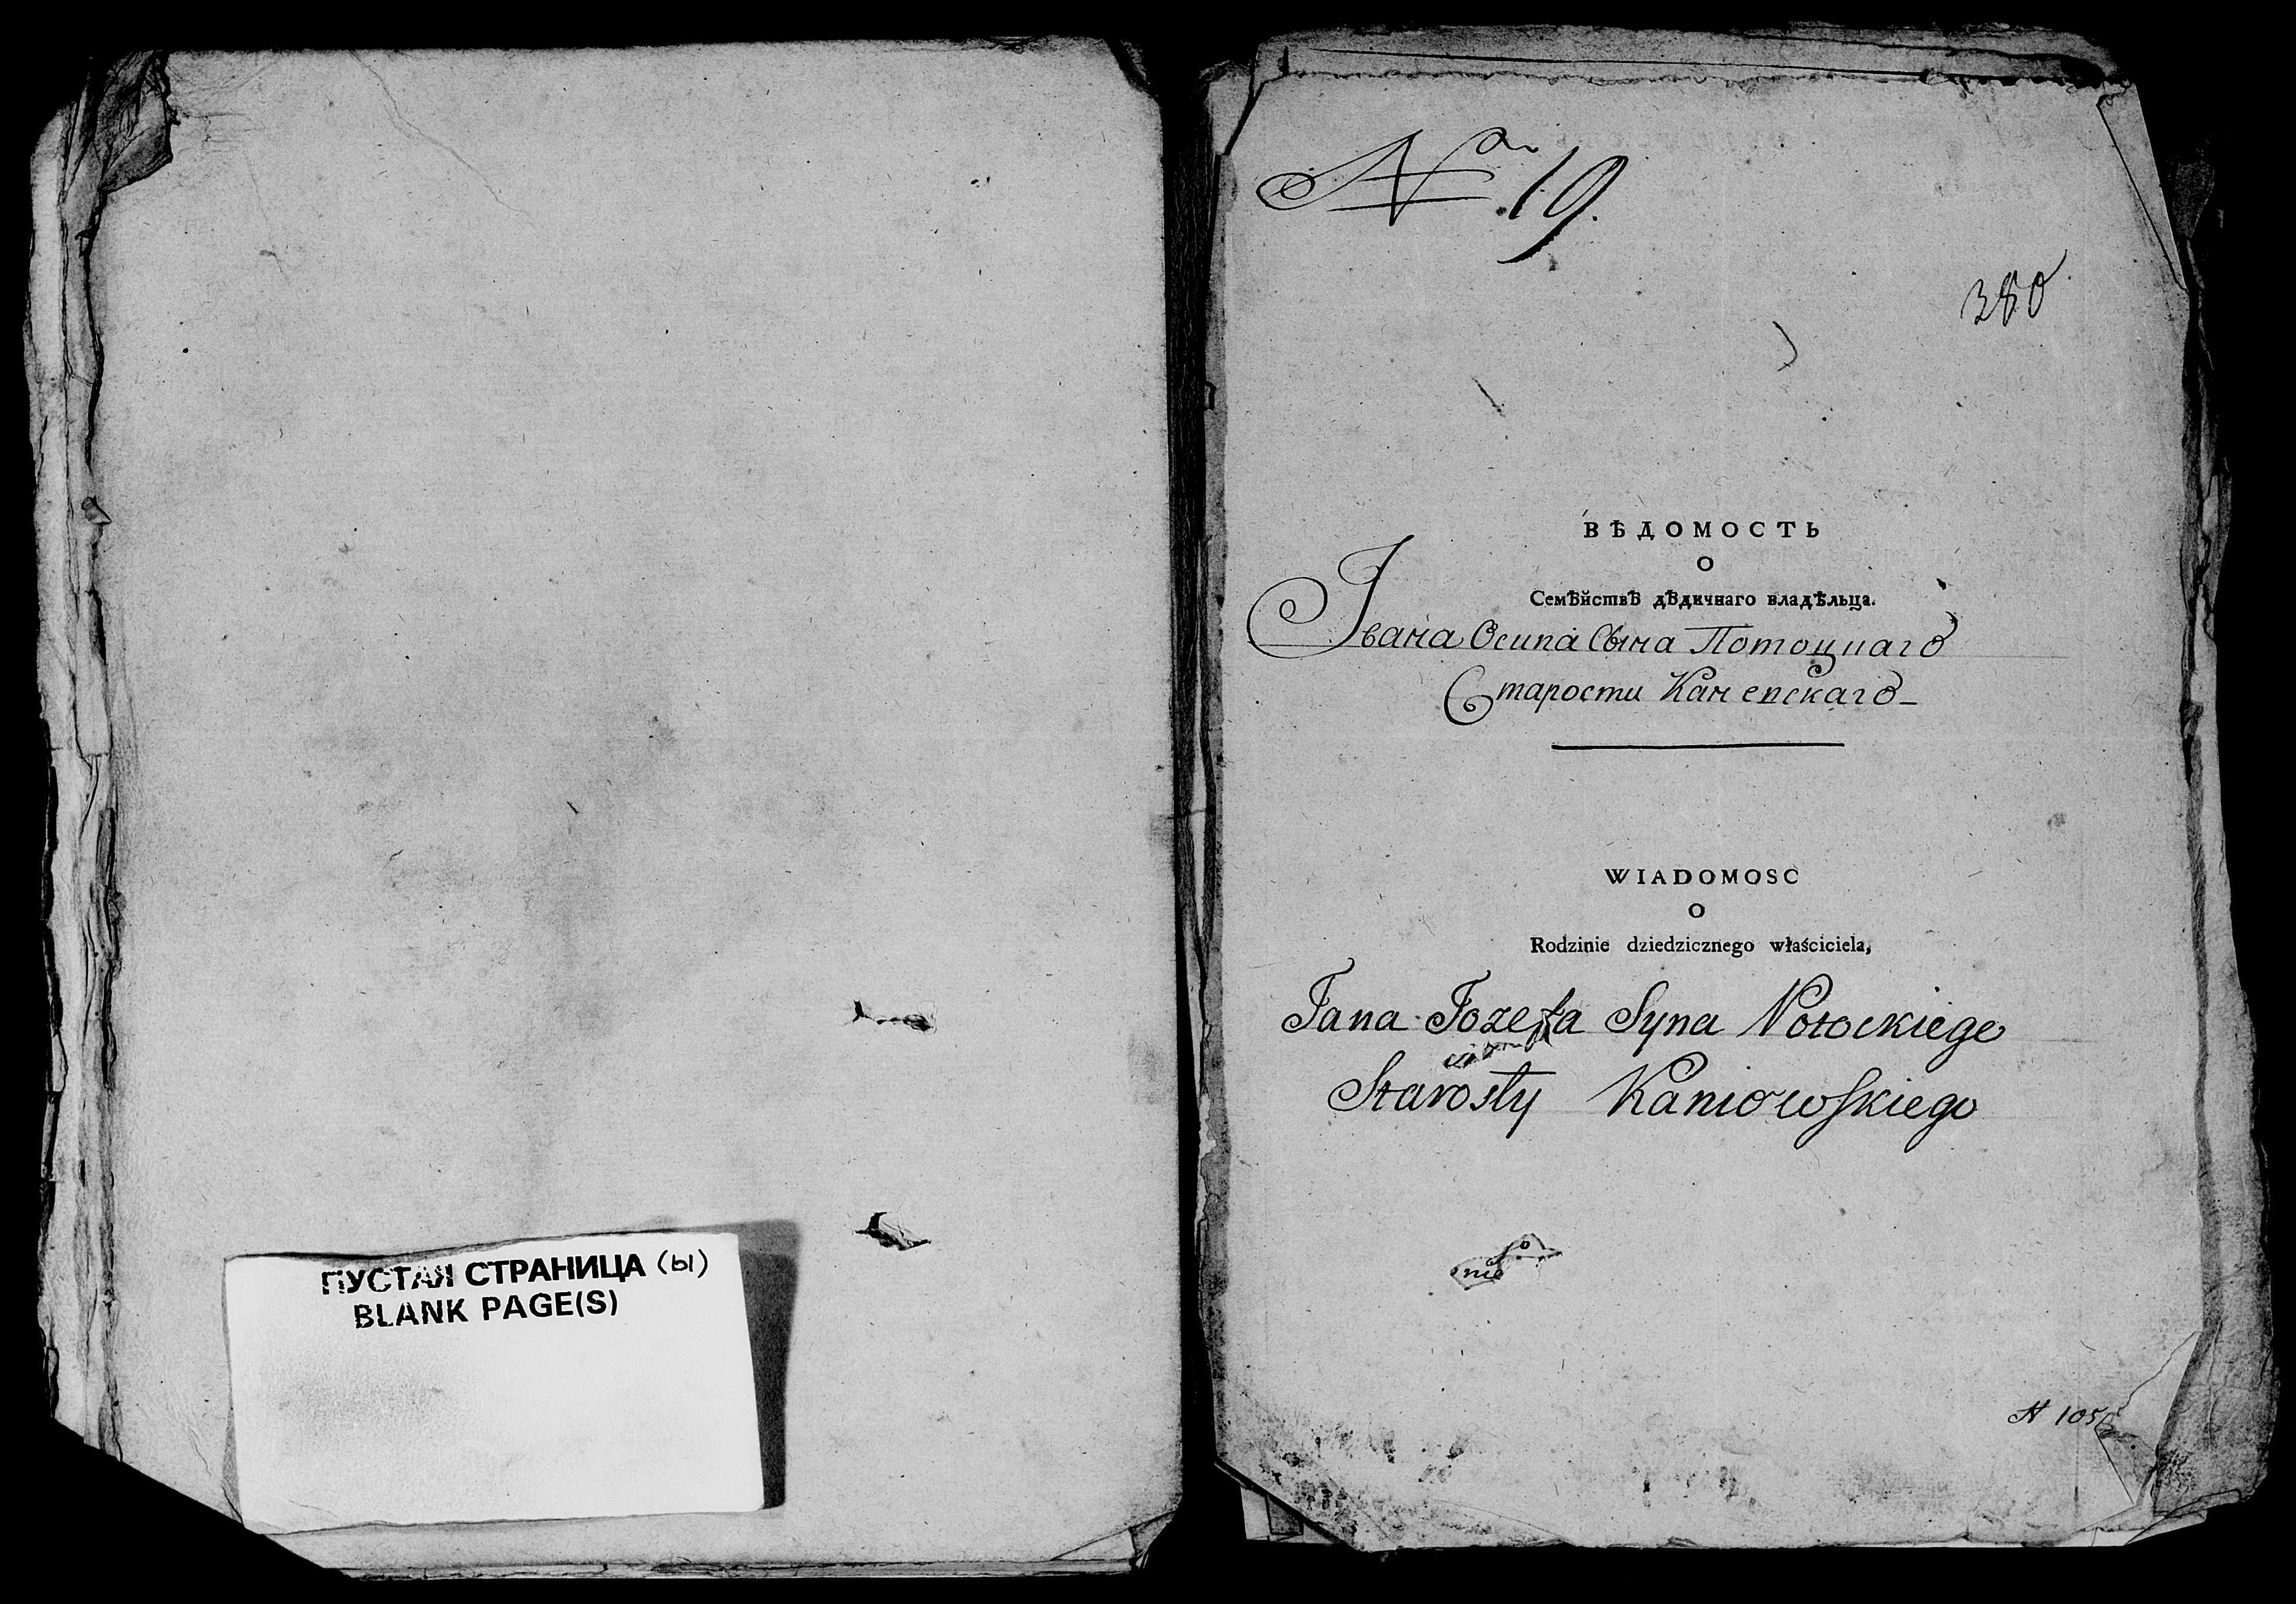 ПУСТАЯ СТРАНИЦА (Ы)
BLANK PAGE(S)
No 19.
380
ВѢДОМОСТЬ
О
Семѣйствѣ дѣдичнаго владѣльца.
Івана Осипа Сына Потоцкаго
Старости Каневскаго
WIADOMOSC
O
Rodzinie dziedzicznego właściciela,
Jana Jozefa Syna Potockiego
Starosty Kaniowskiego
nie
N 105